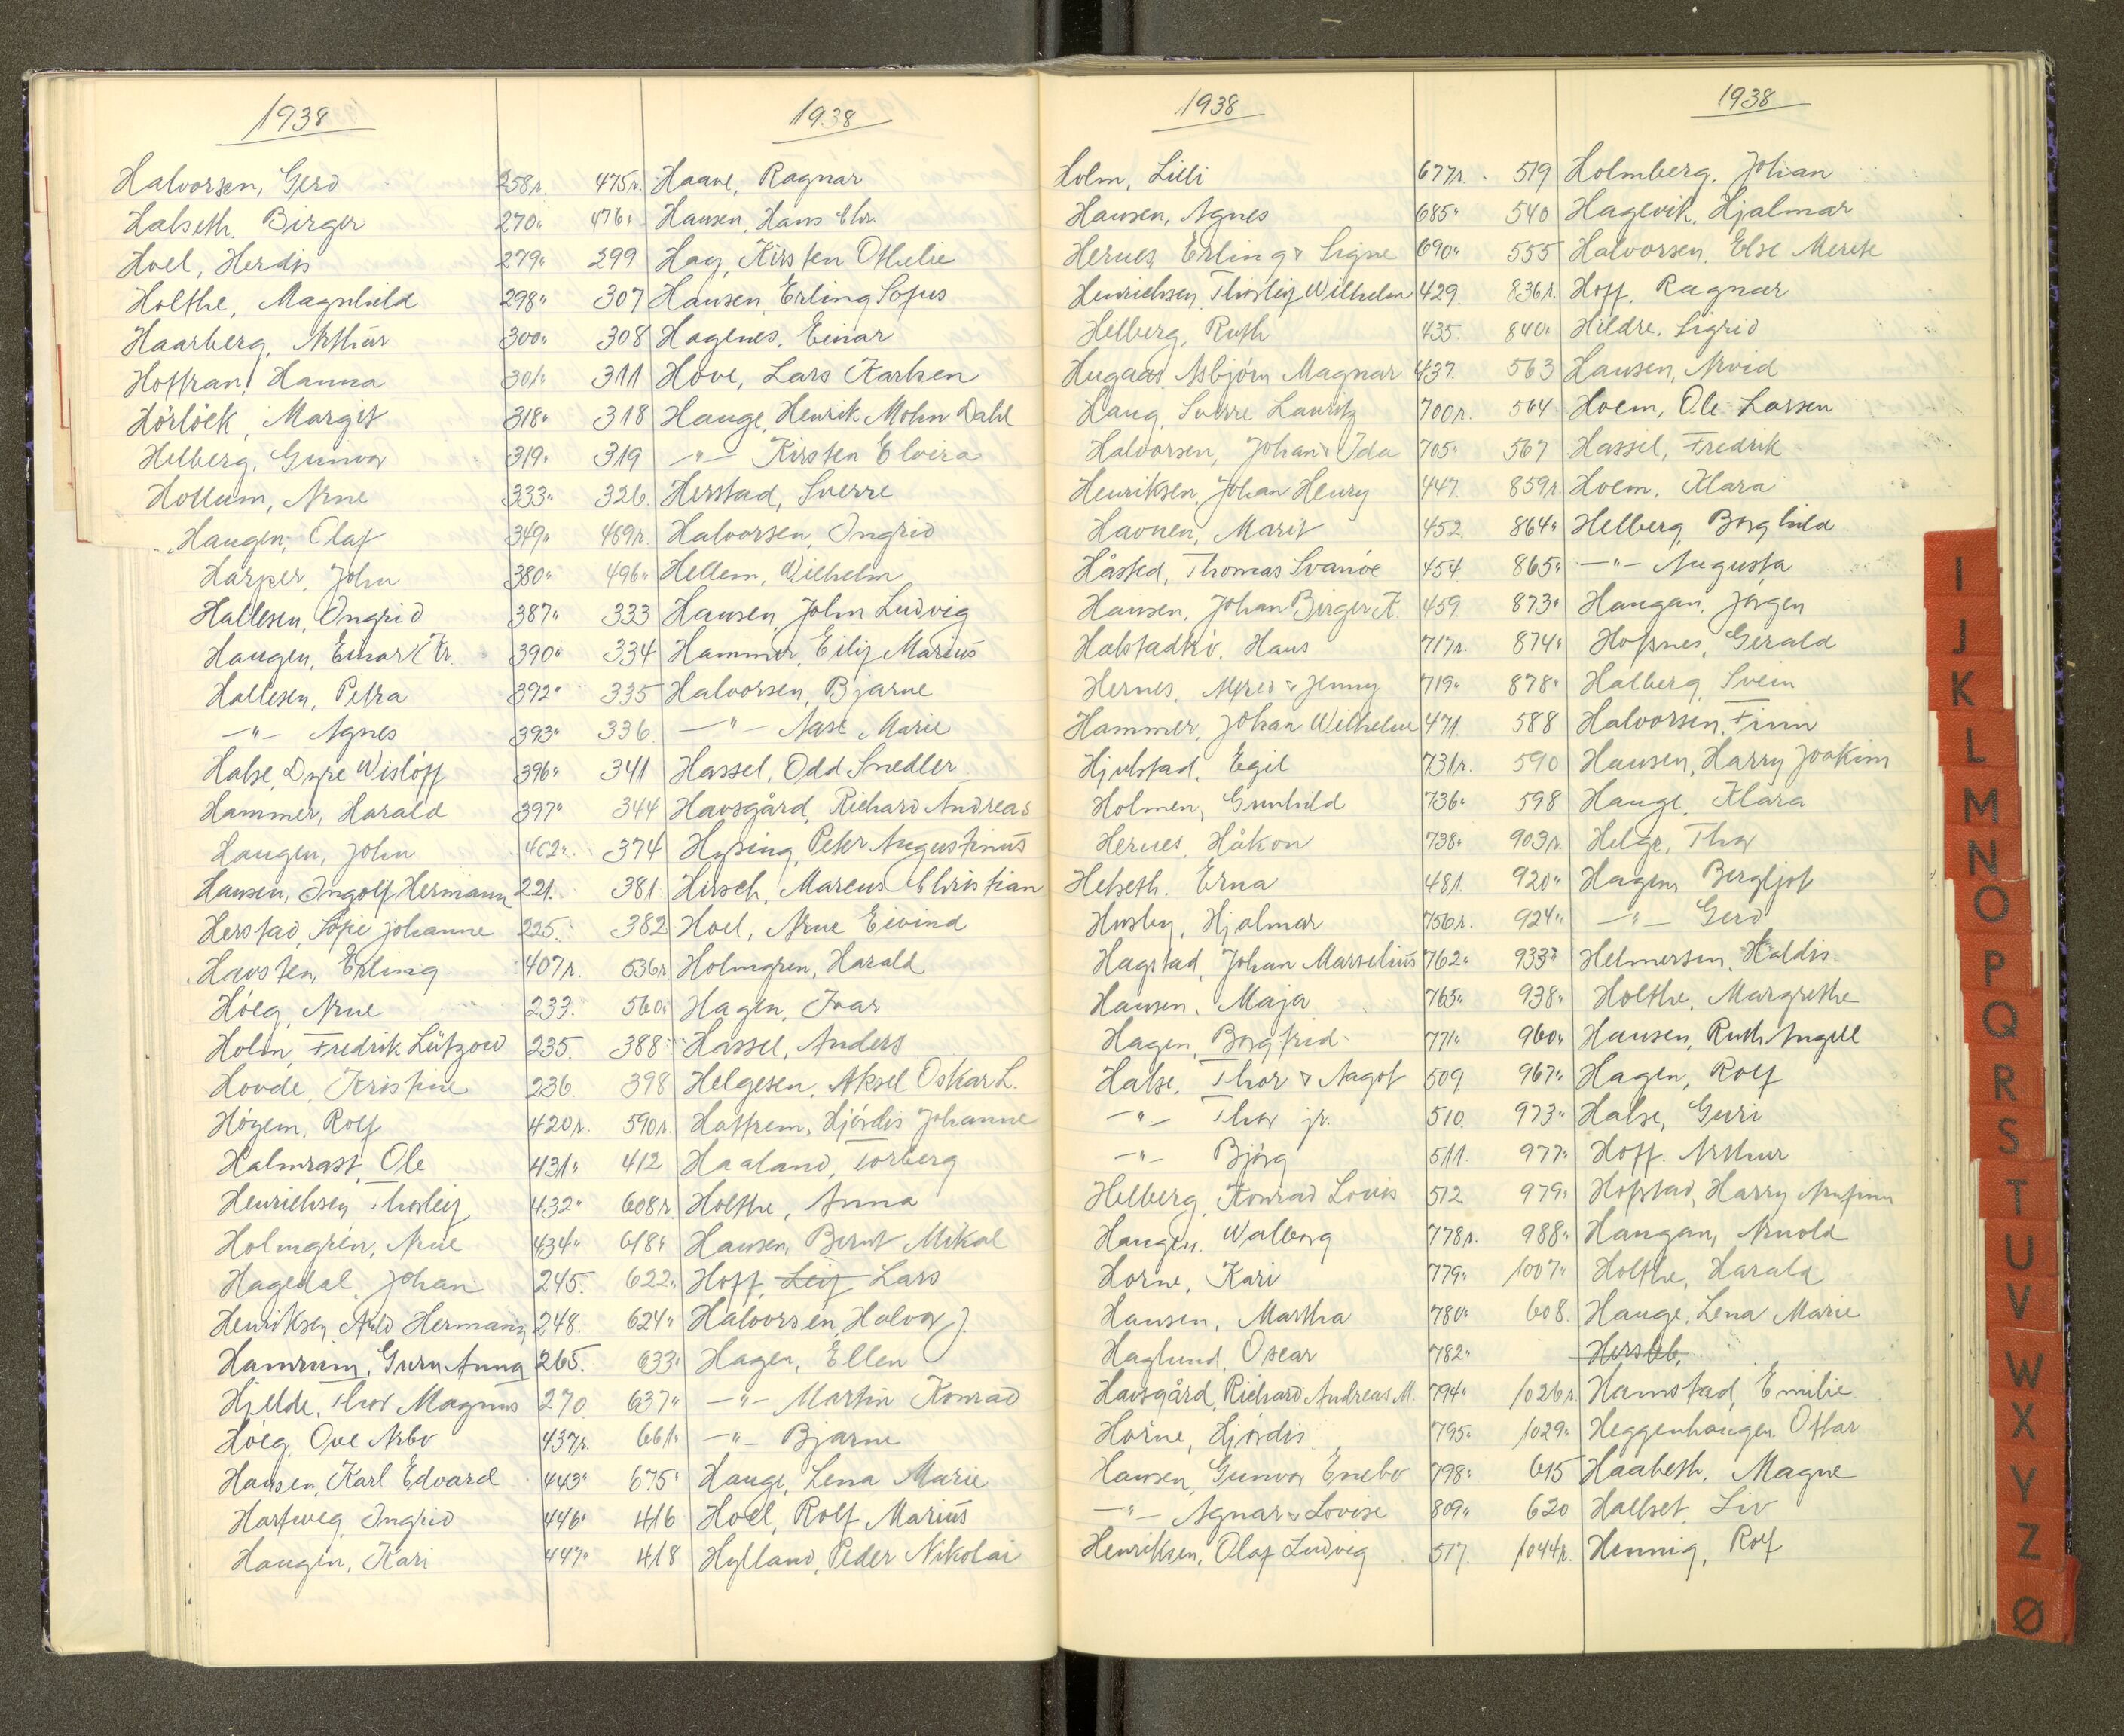 1938
Halvorsen, Gerd 258r.
Halseth, Birger 270"
Hoel, Herdis 279"
Holthe, Magnhild 298"
Haarberg, Arthur 300"
Hoffran, Hanna 301"
Hörlöck, Margit 318"
Helberg, Gunvor 319"
Hollum, Arne 333"
Haugen, Olaf 349"
Harper, John 380"
Hallesen, Ingrid 387"
Haugen, Einar Kr. 390"
Hallesen, Petra 392"
—"— Agnes 393"
Halse, Dyre Wisløff 396"
Hammer, Harald 397"
Haugen, John 402"
Hansen, Ingolf Hermann 221.
Herstad, Sofie Johanne 225.
Havsten, Erling 407r.
Höeg, Arne 233.
Holm, Fredrik Lützow 235.
Hovde, Kristine 236.
Högem, Rolf 420r.
Halmrast, Ole 431"
Henrichsen, Thorleif 432"
Holmgrén, Arne 434"
Hagedal, Johan 245.
Henriksen, Hermann 248.
Hamrum, Guru Anna 265.
Hjelde, Thor Magnus 270
Höeg, Ove Arbo 437r.
Hansen, Karl Edvard 443"
Hartweg, Ingrid 446"
Haugen, Kari 447"
1938
475r. Haave, Ragnar
476" Hansen, Hans Chr.
299 Hay, Kirsten Othelie
307 Hansen, Erling Sofus
308 Hagenes, Einar
311 Hove, Lars Karlsen
318 Hauge, Henrik Mohn Dahl
319 —"— Kirsten Elvira
326. Herstad, Sverre
489r. Halvorsen, Ingrid
496" Hellem, Wilhelm
333 Hansen, John Ludvig
334 Hammer, Eilif Marius
335 Halvorsen, Bjarne
336 —"— Aase Marie
341 Hassel, Odd Snedler
344 Havsgård, Richard Andreas
374 Hysing, Peter Augustinus
381 Hirsch, Marcus Christian
382 Hoel, Arne Eivind
536r. Holmgren, Harald
560" Hagen, Ivar
388 Hassel, Anders
398 Helgesen, Aksel Oskar L.
590r. Hattrem, Hjördis Johanne
412 Haaland, Torberg
608r. Holthe, Anna
618" Hansen, Bernt Mikal
622" Hoff, Leif Lars
624" Halvorsen, Halvor J.
633" Hagen, Ellen
637" —"— Martin Konrad
661" —"— Bjarne
675" Hauge, Lena Marie
416 Hoel, Rolf Marius
418 Hylland, Peder Nikolai
1938
Holm, Lilli 677r.
Hansen, Agnes 685"
Hernes, Erling & Signe 690"
Henrichsen, Thorleif Wilhelm 429.
Helberg, Ruth 435.
Hugaas, Asbjörn Magnar 437.
Haug, Sverre Lauritz 700r.
Halvorsen, Johan & Ida 705"
Henriksen, Johan Henry 447.
Havnen, Marit 452.
Håsted, Thomas Svanöe 454
Hansen, Johan Birger A. 459.
Halstadtrö, Hans 717r.
Hernes, Alfred & Jenny 719"
Hammer, Johan Wilhelm 471.
Hjulstad, Egil 731r.
Holmen, Gunhild 736"
Hernes, Håkon 738"
Helseth, Erna 481.
Husby, Hjalmar 756r.
Hagstad, Johan Marselius 762"
Hansen, Maja 765"
Hagen, Borgfrid 771"
Halse, Thor & Aagot 509
—"— Thor jr. 510.
—"— Bjørg 511.
Helberg, Konrad Louis 512
Haugen, Walborg 778r.
Horne, Kari 779"
Hansen, Martha 780"
Haglund, Oscar 782"
Havsgård, Richard Andreas M. 794"
Horne, Hjördis 795"
Hansen, Gunvor Enebo 798"
—"— Agnar & Lovise 809"
Henriksen, Olaf Ludvig 517.
1938
519 Holmberg, Johan
540 Hagevik, Hjalmar
555 Halvorsen, Else Merete
836r. Hoff, Ragnar
840" Hildre, Sigrid
563 Hansen, Arvid
564 Hoem, Ole Larsen
567 Hassel, Fredrik
859r Hoem, Klara
864" Helberg, Borghild
865" —"— Augusta
873" Haugan, Jørgen
874" Hofsnes, Gerald
878" Halberg, Svein
588 Halvorsen, Finn
590 Hansen, Harry Joakim
598 Hauge, Klara
903r. Helge, Thor
920" Hagen, Bergljot
924" —"— Gerd
933" Helmersen, Haldis
938" Holthe, Margrethe
960" Hansen, Ruth Angell
967" Hagen, Rolf
973" Halse, Guri
977" Hoff, Arthur
979" Hofstad, Harry Arnfinn
988" Haugan, Arnold
1007" Holthe, Harald
608. Hauge, Lena Marie
Hersleb,
1026r. Hamstad, Emilie
1029" Heggenhougen, Ottar
615 Haabeth, Magne
620 Hallset, Liv
1044r. Hennig, Rolf
I
J
K
L
M
N
O
P
Q
R
S
T
U
V
W
X
Y
Z
Ø